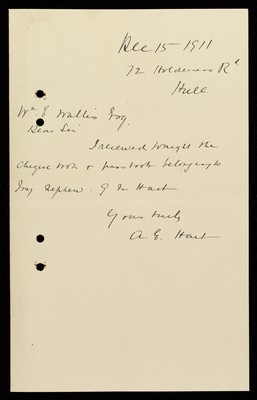 Dec 15 - 1911
72 Holderness Rd
Hull
Wm E Wallis Esq.
Dear Sir
I received tonight the
cheque book & pass book belonging to
my Nephew. G M Hart
Yours truly
A. E. Hart